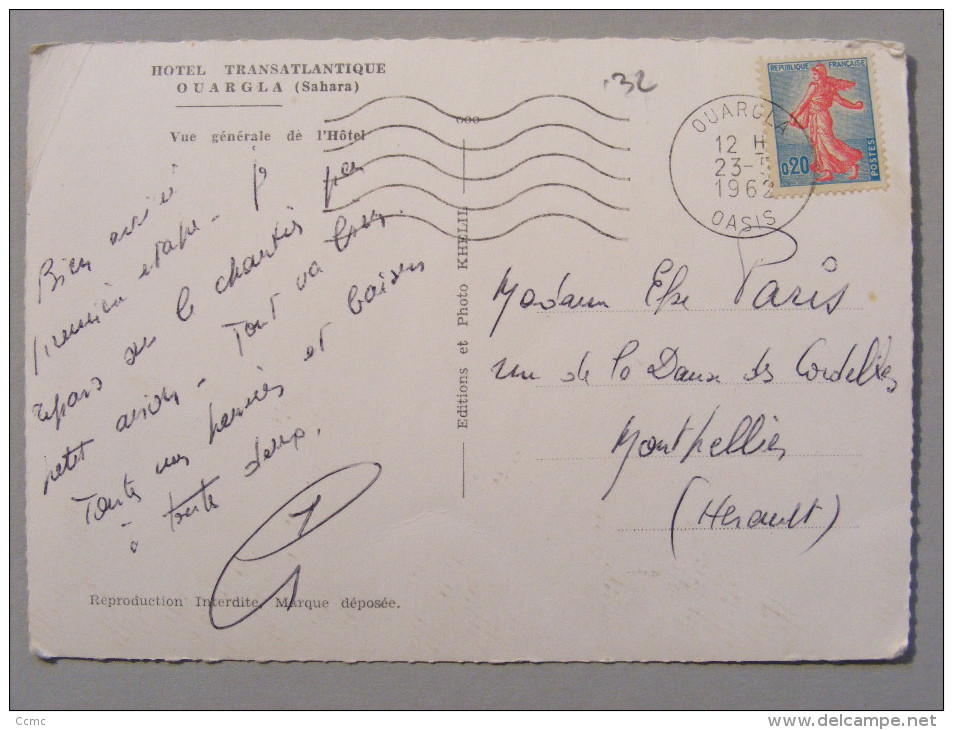 HOTEL TRANSATLANTIQUE
OUARGLA (Sahara)
Vue générale de l'Hôtel
Bien arrivé
première étape - Je
repars sur le chantier
petit avion - Tout va bien.
Toutes mes pensées et baisers
à toute deux.
Reproduction Interdite, Marque déposée.
Editions et Photo KHELIL
32
REPUBLIQUE FRANÇAISE
0,20
POSTES
OUARGLA
12 H
23-
1962
OASIS
Madame Paris
rue de la des Cordeliers
Montpellier
(Hérault)
Ccmc
www.delcampe.net